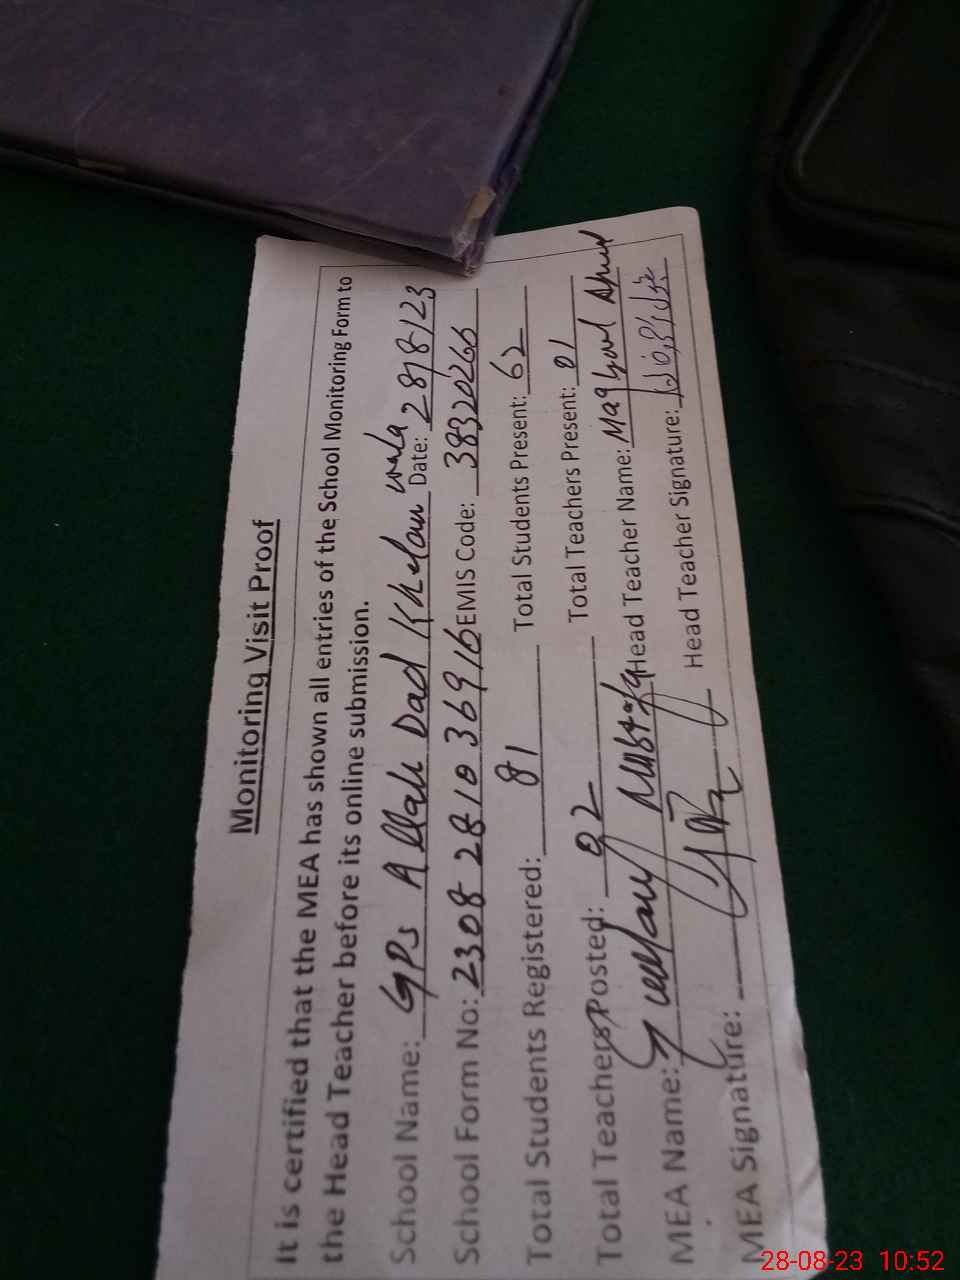 Monitoring Visit Proof
It is certified that the MEA has shown all entries of the School Monitoring Form to
the Head Teacher before its online submission.
School Name: GPS Allah Dad Khelan wala Date: 28/8/23
School Form No: 2308 28 10 36916 EMIS Code: 38320266
Total Students Registered: 81 Total Students Present: 62
Total Teachers Posted: 02 Total Teachers Present: 01
MEA Name: Ghulam Mustafa Head Teacher Name: Maqbool Ahmed
MEA Signature: Head Teacher Signature:
28-08-23 10:52